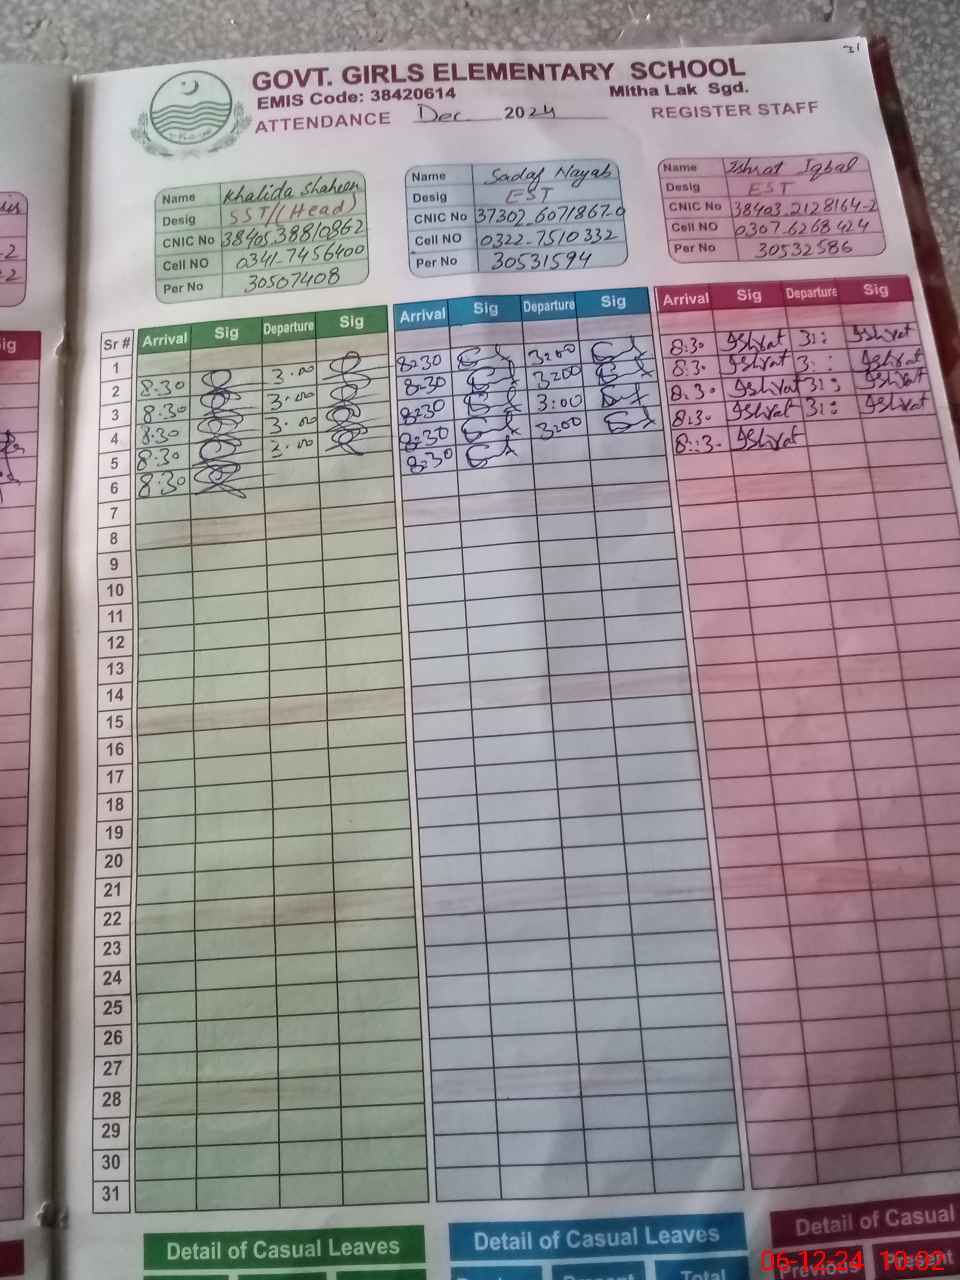 31
GOVT. GIRLS ELEMENTARY SCHOOL
EMIS Code: 38420614 Mitha Lak Sgd.
ATTENDANCE Dec 2024 REGISTER STAFF
Name Khalida Shaheen
Desig SST/(Head)
CNIC No 38405 38810862
Cell NO 0341-7456400
Per No 30507408
Name Sadaf Nayab
Desig EST
CNIC No 37302-6071867-0
Cell NO 0322-7510332
Per No 30531594
Name Ishrat Iqbal
Desig EST
CNIC No 38403-2128164-2
Cell NO 0307-6268424
Per No 30532586
Sr # Arrival Sig Departure Sig Arrival Sig Departure Sig Arrival Sig Departure Sig
1 8:30 3:00 8:30 Ishrat Ishrat
2 8:30 3.00 8:30 3:00 8:30 Ishrat Ishrat
3 8:30 3.00 8:30 3:00 8:30 Ishrat Ishrat
4 8:30 3.00 8:30 3:00 8:30 Ishrat Ishrat
5 8:30 3.00 8:30 Ishrat
6 8:30
7
8
9
10
11
12
13
14
15
16
17
18
19
20
21
22
23
24
25
26
27
28
29
30
31
Detail of Casual Leaves Detail of Casual Leaves Detail of Casual
Total Previous Present
06-12-24 10:02